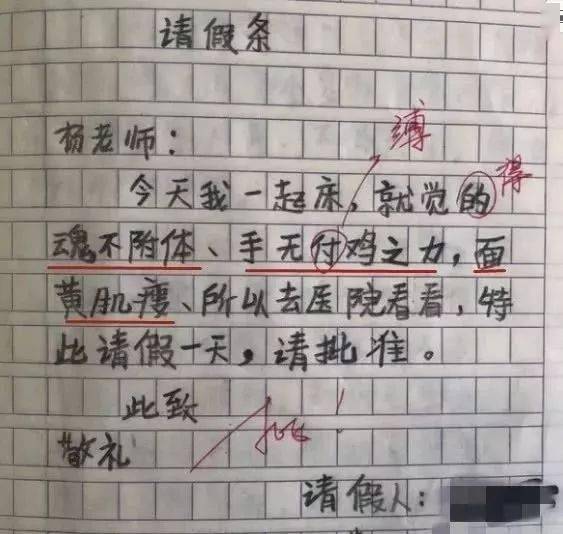 请假条
缚
杨老师：
今天我一起床，就觉的得
魂不附体、手无付鸡之力，面
黄肌瘦、所以去医院看看，特
此请假一天，请批准。
此致
敬礼
请假人：